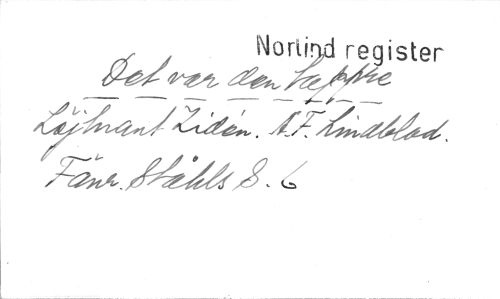 Norlind register
Det var den tappre
Löjtnant Zidén. A.F. Lindblad.
Fänr. Ståhls S. 6